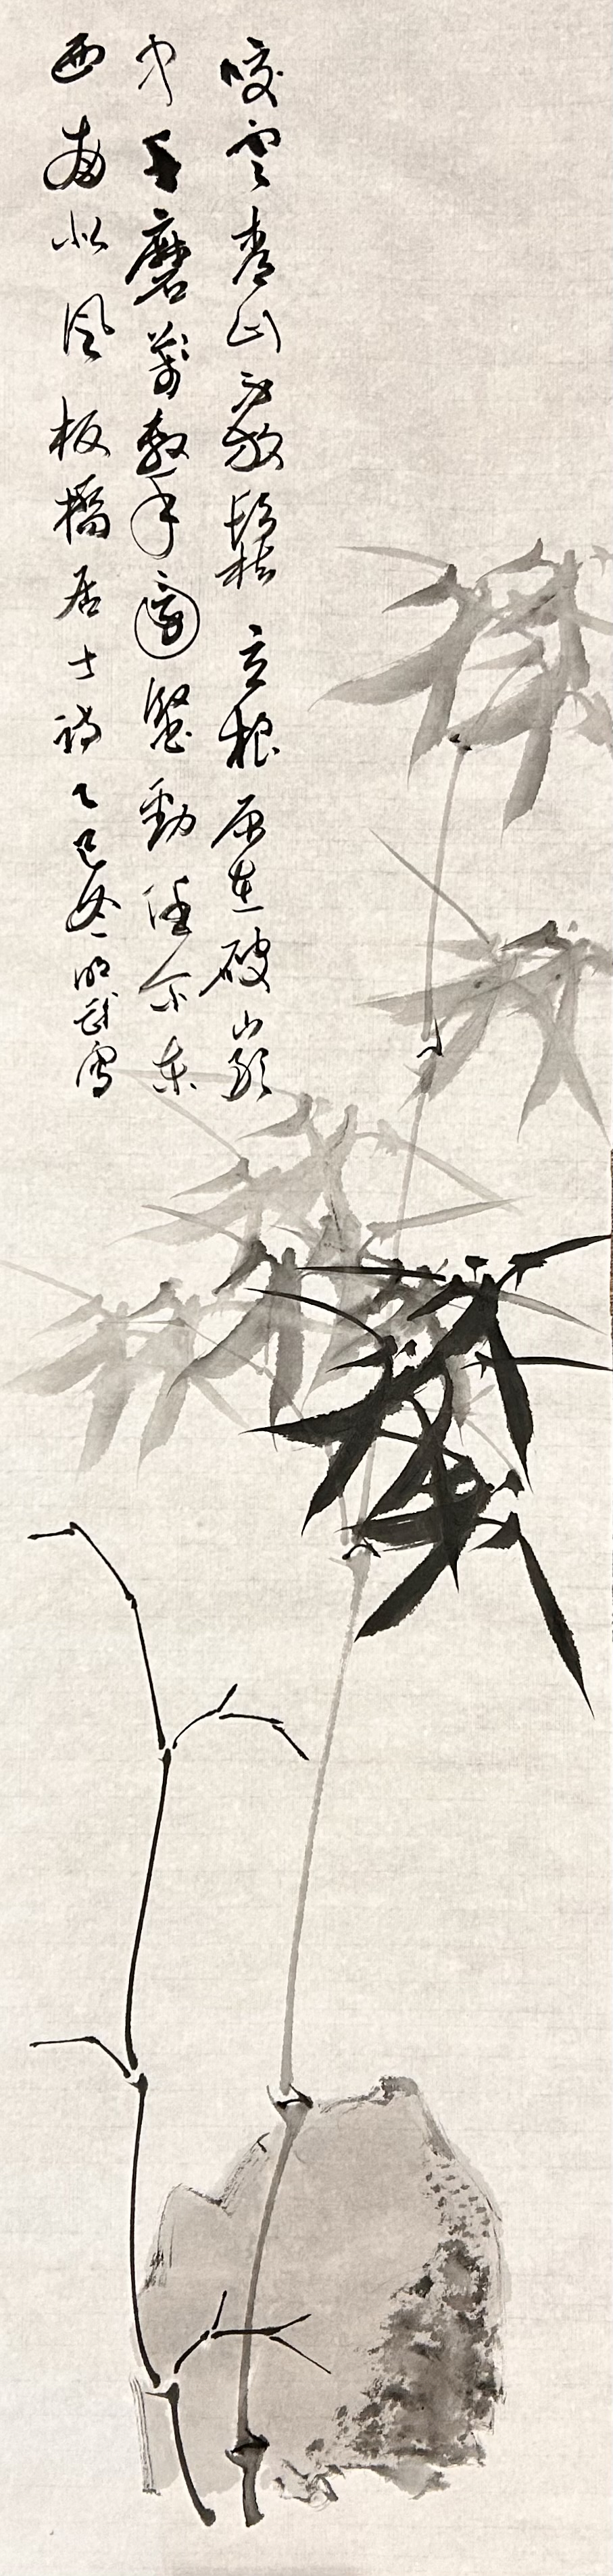 咬定青山不放鬆立根原在破巖
中千磨萬擊還堅勁任尔東
西南北風板橋居士詩乙巳冬寫